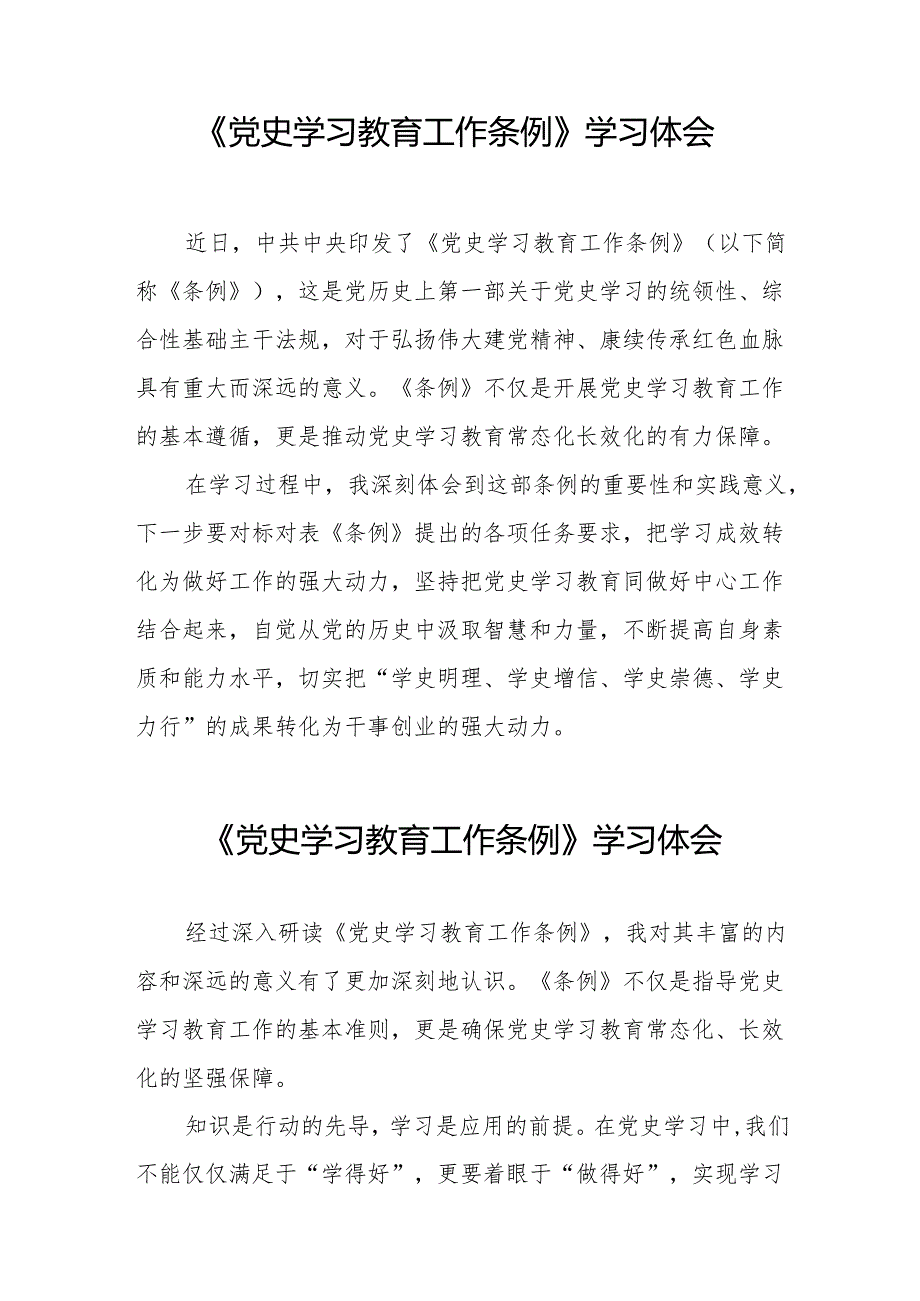 《党史学习教育工作条例》学习体会
近日，中共中央印发了《党史学习教育工作条例》（以下简
称《条例》），这是党历史上第一部关于党史学习的统领性、综
合性基础主干法规，对于弘扬伟大建党精神、康续传承红色血脉
具有重大而深远的意义。《条例》不仅是开展党史学习教育工作
的基本遵循，更是推动党史学习教育常态化长效化的有力保障。
在学习过程中，我深刻体会到这部条例的重要性和实践意义，
下一步要对标对表《条例》提出的各项任务要求，把学习成效转
化为做好工作的强大动力，坚持把党史学习教育同做好中心工作
结合起来，自觉从党的历史中汲取智慧和力量，不断提高自身素
质和能力水平，切实把“学史明理、学史增信、学史崇德、学史
力行”的成果转化为干事创业的强大动力。
《党史学习教育工作条例》学习体会
经过深入研读《党史学习教育工作条例》，我对其丰富的内
容和深远的意义有了更加深刻地认识。《条例》不仅是指导党史
学习教育工作的基本准则，更是确保党史学习教育常态化、长效
化的坚强保障。
知识是行动的先导，学习是应用的前提。在党史学习中,我们
不能仅仅满足于“学得好”，更要着眼于“做得好”，实现学习